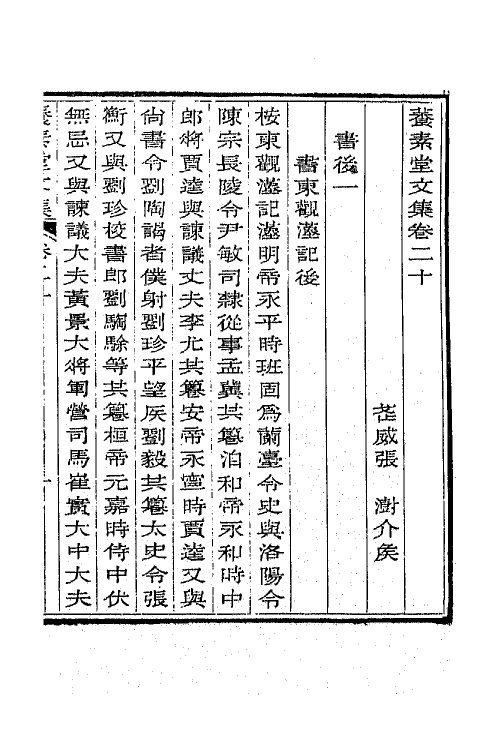 養素堂文集卷二十
武威張　澍介矦
書後一
書東觀漢記後
桉東觀漢記漢明帝永平時班固爲蘭臺令史與洛陽令
陳宗長陵令尹敏司隸從事孟冀共篹洎和帝永和時中
郎將賈逵與諫議大夫李尤共篹安帝永寧時賈逵又與
尙書令劉陶謁者僕射劉珍平望矦劉毅共篹太史令張
衡又與劉珍校書郎劉騊駼等共篹桓帝元嘉時侍中伏
無忌又與諫議大夫黃景大將軍營司馬崔實大中大夫
養素堂文集